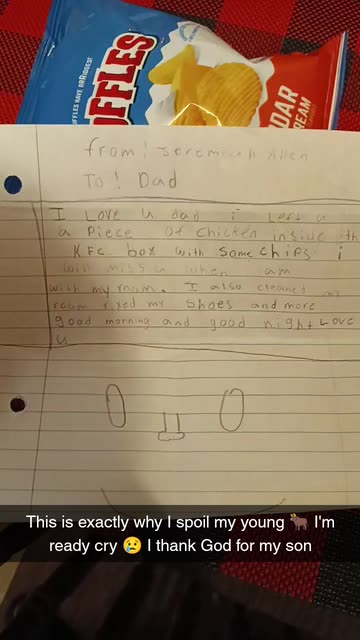 RUFFLES HAVE RRRIDGES!
UFFLES
DAR
REAM
from! Jeremiah Allen
To! Dad
I Love u dad i Left u
a Piece of chicken inside th
KFC box with some chips i
will miss u when am
with my mom. I also cleaned my
room fixed my shoes and more
good morning and good night Love
u
This is exactly why I spoil my young 🐂 I'm
ready cry 😢 I thank God for my son